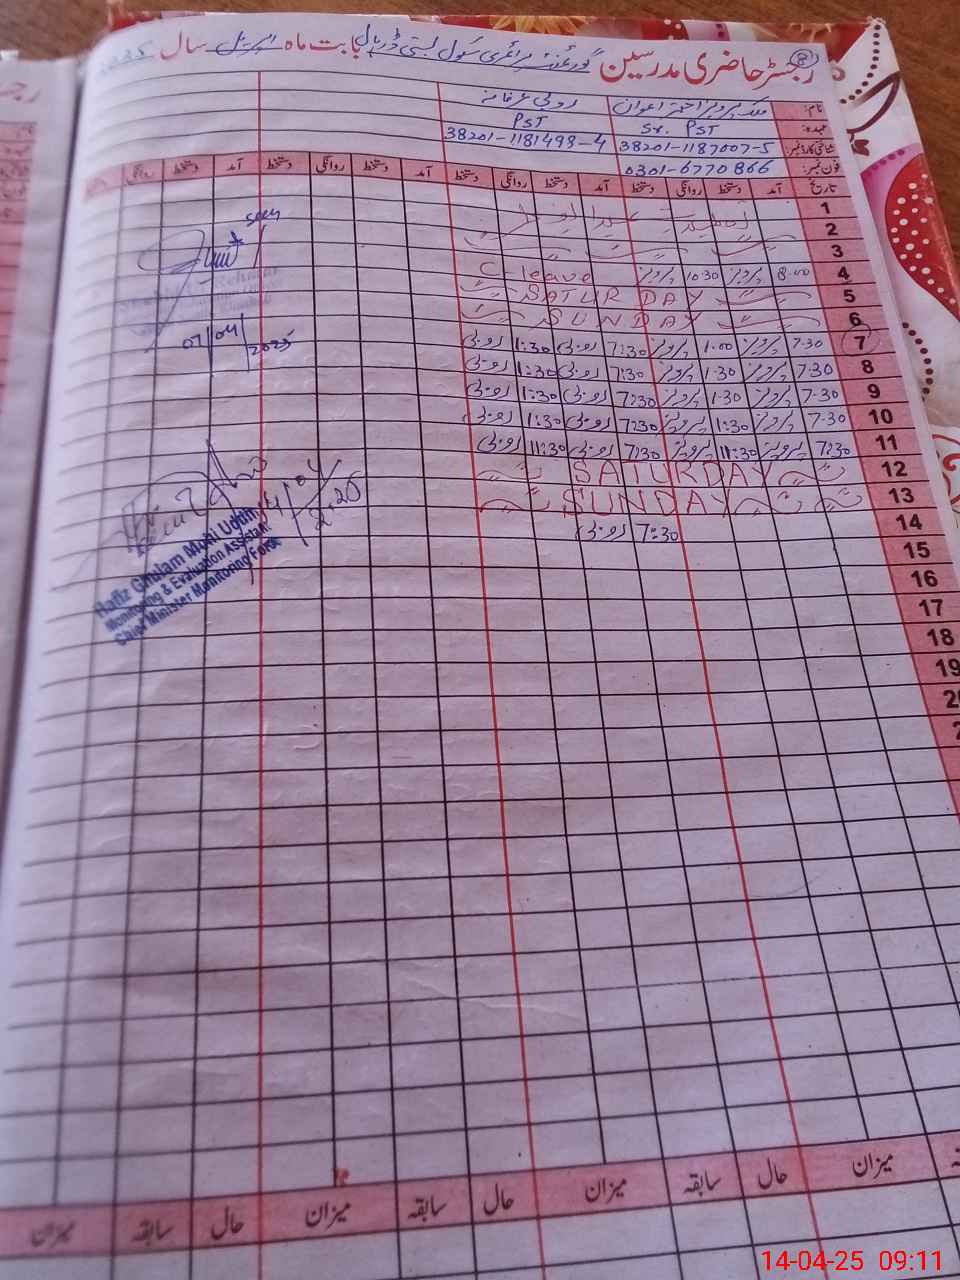 رجسٹر حاضری مدرسین گورنمنٹ پرائمری سکول بستی ڈریال بابت ماہ اپریل سال 2025
نام: ملک پرویز احمد اعوان
عہدہ: Sr. PST PST
شناختی کارڈ نمبر: 38201-1187007-5 38201-1181498-4
فون نمبر: 0301-6770866
تاریخ آمد دستخط روانگی دستخط آمد دستخط روانگی دستخط آمد دستخط روانگی دستخط آمد دستخط روانگی
1
2
3
4 8.00 پرویز 10.30 پرویز C-leave
5 SATURDAY
6 SUNDAY
7 7.30 پرویز 1.00 پرویز 7:30 روبی 1:30 روبی
8 7.30 پرویز 1.30 پرویز 7:30 روبی 1:30 روبی
9 7.30 پرویز 1.30 پرویز 7:30 روبی 1:30 روبی
10 7.30 پرویز 1:30 پرویز 7:30 روبی 1:30 روبی
11 7:30 پرویز 11:30 پرویز 7:30 روبی 11:30 روبی
12 SATURDAY
13 SUNDAY
14 7:30 روبی
15
16
17
18
19
seen
07/04/2025
Hafiz Ghulam Mohi Uddin
Monitoring & Evaluation Assistant
Chief Minister Monitoring Force
میزان حال سابقہ میزان حال سابقہ میزان حال سابقہ میزان
14-04-25 09:11